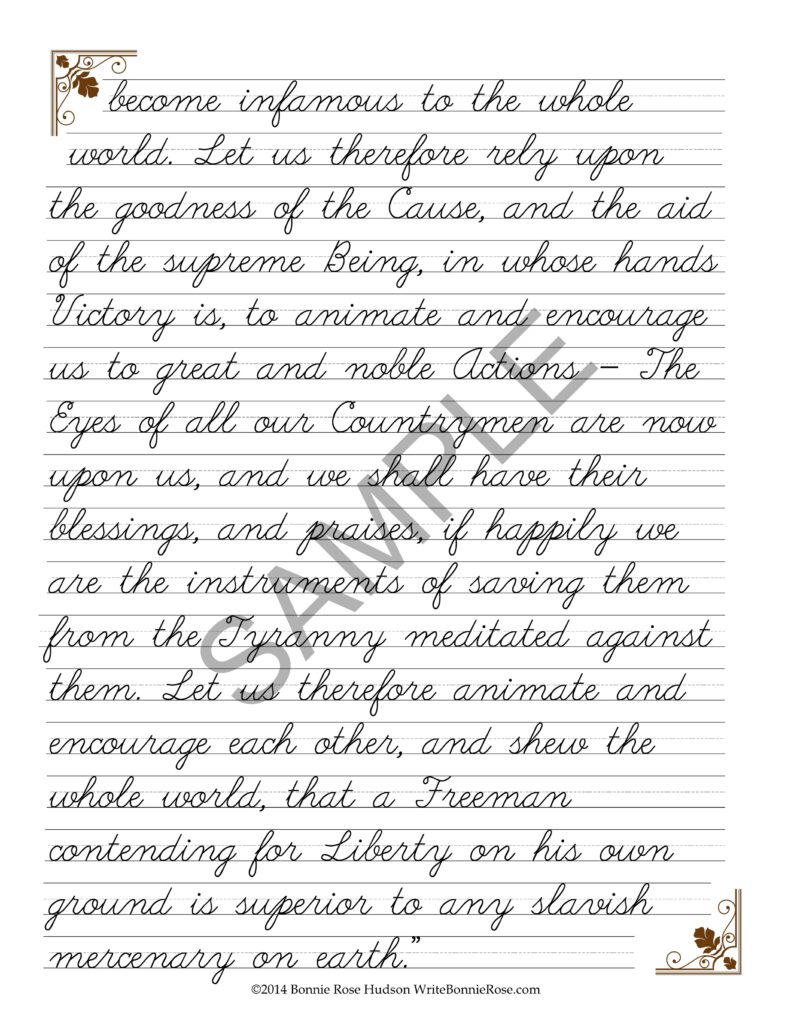 become infamous to the whole
world. Let us therefore rely upon
the goodness of the Cause, and the aid
of the supreme Being, in whose hands
Victory is, to animate and encourage
us to great and noble Actions – The
Eyes of all our Countrymen are now
upon us, and we shall have their
blessings, and praises, if happily we
are the instruments of saving them
from the Tyranny meditated against
them. Let us therefore animate and
encourage each other, and shew the
whole world, that a Freeman
contending for Liberty on his own
ground is superior to any slavish
mercenary on earth.”
SAMPLE
©2014 Bonnie Rose Hudson WriteBonnieRose.com